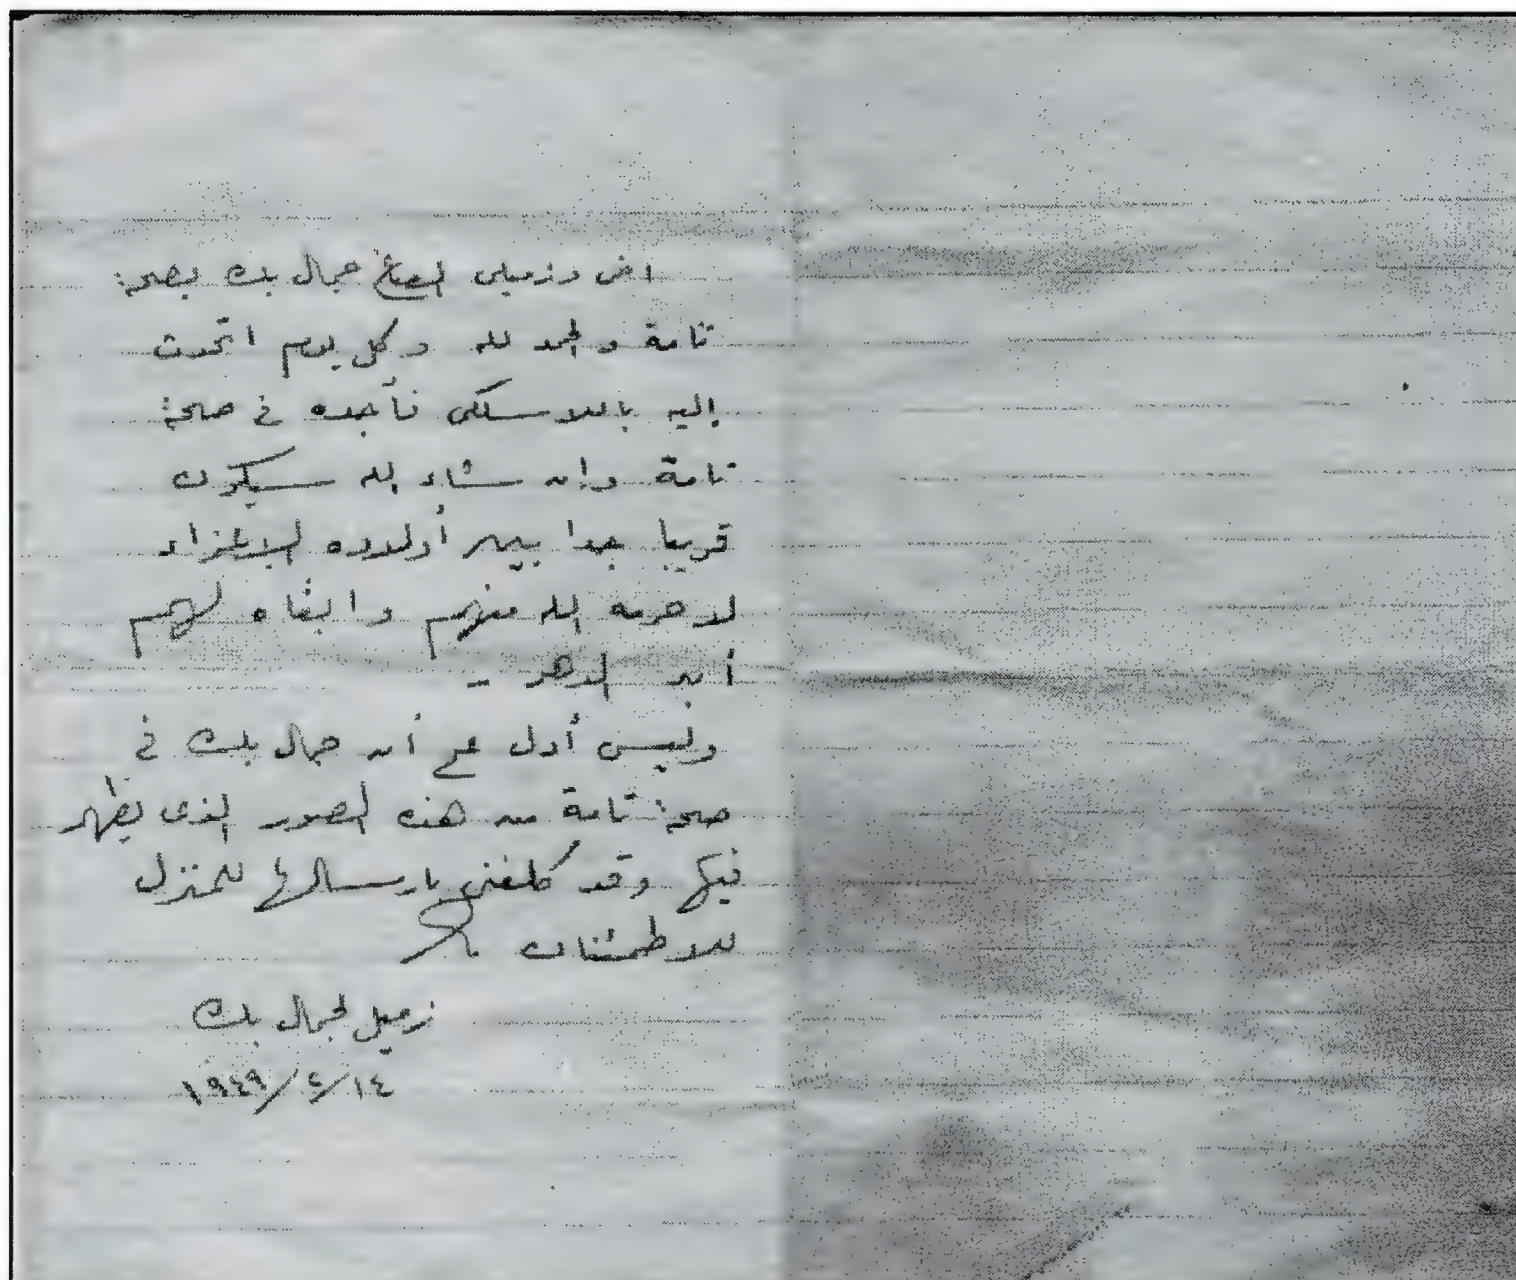 اخى وزميلى الصاغ جمال بك بصحة
تامة والحمد لله وكل يوم اتحدث
إليه باللاسلكى فأجده فى صحة
تامة وان شاء الله سيكون
قريبا جدا بين أولاده الاعزاء
لا حرمه الله منهم وابقاه لهم
أبد الدهر -
وليس أدل على أن جمال بك فى
صحة تامة من هذه الصور الذى يظهر
فيها وقد كلفنى بارسالها للمنزل
للاطمئنان
زميل لجمال بك
١٩٤٩/٤/١٤